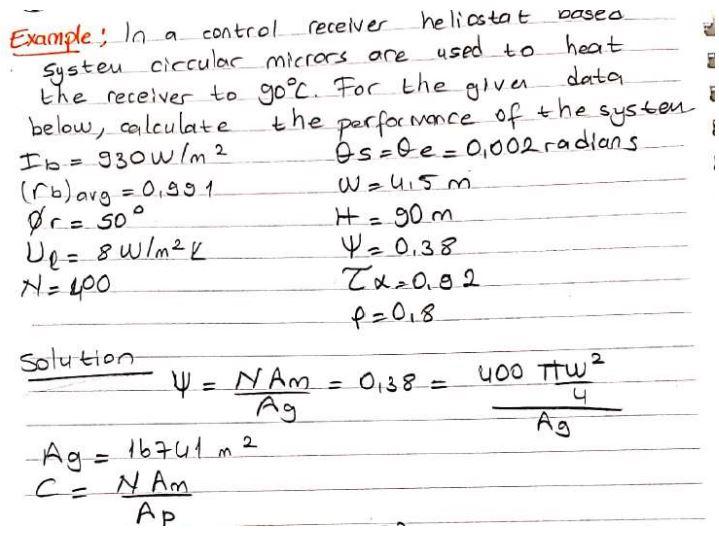 Example: In a control receiver heliostat based
system circular mirrors are used to heat
the receiver to 90°C. For the given data
below, calculate the performance of the system
Ib = 930 W/m²
θs = θe = 0,002 radians
(rb)avg = 0,991
W = 4,5 m
Ør = 50°
H = 90 m
Ul = 8 W/m² K
Ψ = 0,38
N = 400
τα = 0,92
ρ = 0,8
Solution
Ψ = N Am / Ag = 0,38 = 400 πW²/4 / Ag
Ag = 16741 m²
C = N Am / Ap